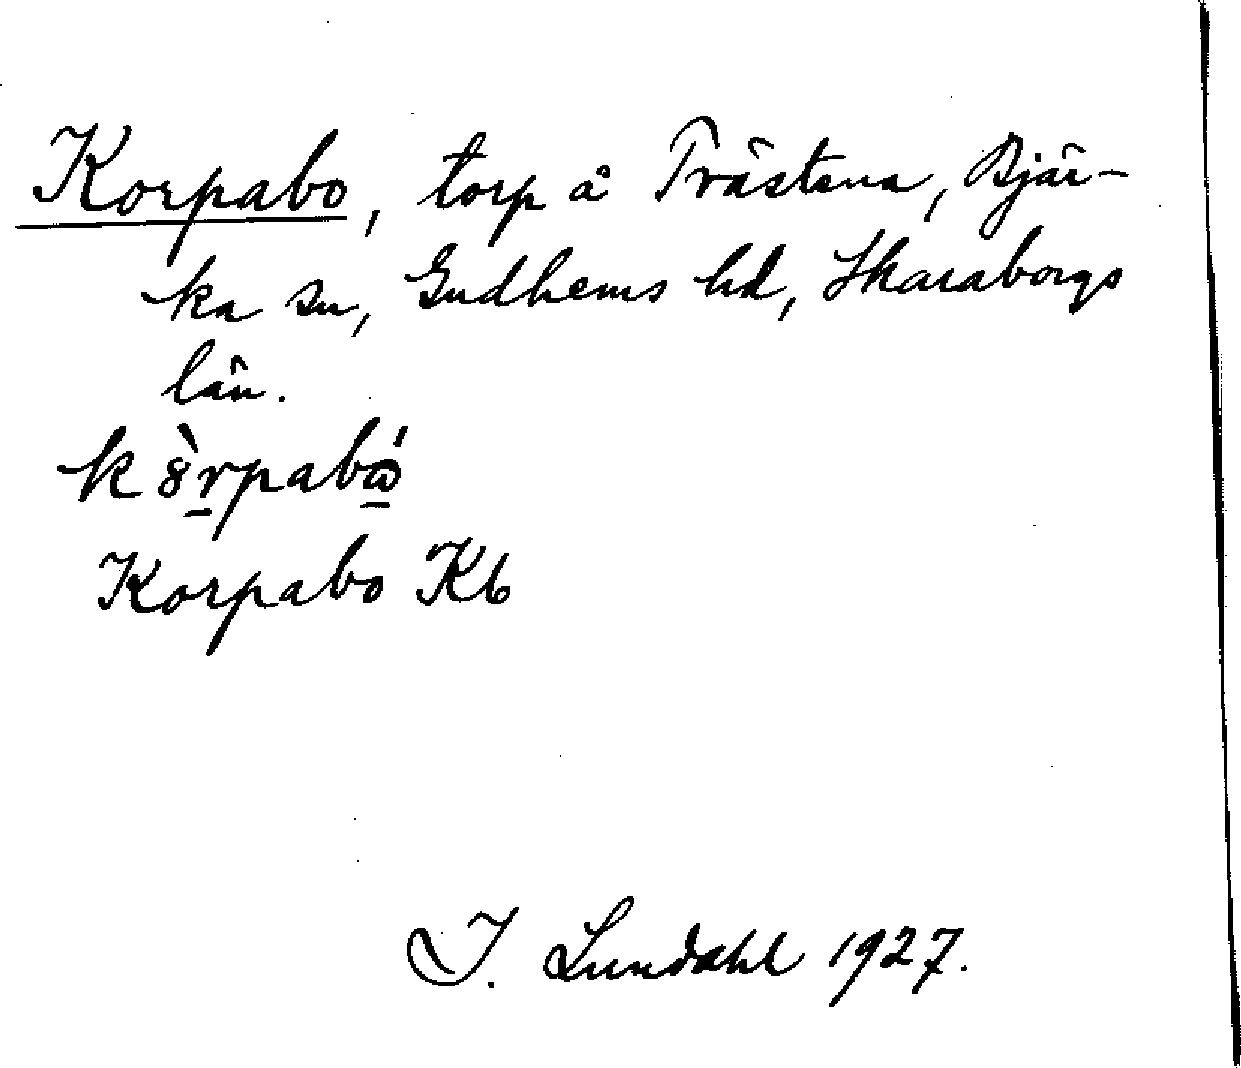 Korpabo, torp å Trästena, Bjär-
ka sn, Gudhems hd, Skaraborgs
län.
k8̀r̲pabώ̲
Korpabo Kb
I. Lundahl 1927.